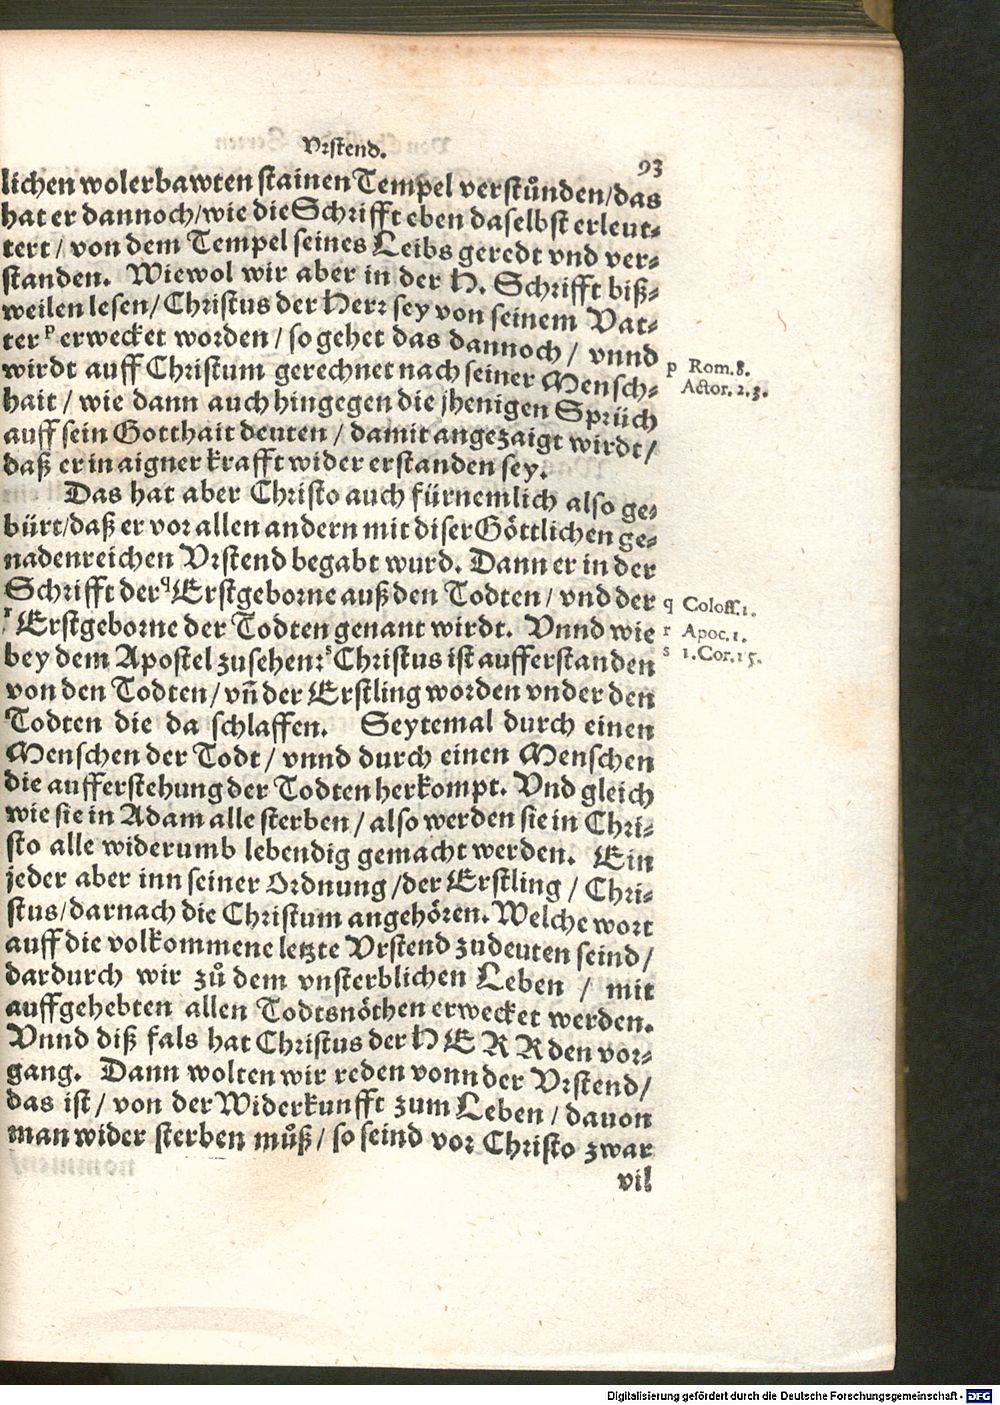 Vrstend.
93
lichen wolerbawten stainen Tempel verstůnden/das
hat er dannoch/wie die Schrifft eben daselbst erleut-
tert/ von dem Tempel seines Leibs geredt vnd ver-
standen. Wiewol wir aber in der H. Schrifft biß-
weilen lesen/ Christus der Herr sey von seinem Vat-
ter p erwecket worden/ so gehet das dannoch/ vnnd
wirdt auff Christum gerechnet nach seiner Mensch-
hait/ wie dann auch hingegen die jhenigen Sprüch
auff sein Gotthait deuten/ damit angezaigt wirdt/
daß er in aigner krafft wider erstanden sey.
p Rom.8.
Actor.2.3.
Das hat aber Christo auch fürnemlich also ge-
bürt/daß er vor allen andern mit diser Göttlichen ge-
nadenreichen Vrstend begabt wurd. Dann er in der
Schrifft der q Erstgeborne auß den Todten/ vnd der
r Erstgeborne der Todten genant wirdt. Vnnd wie
bey dem Apostel zusehen: s Christus ist aufferstanden
von den Todten/ vñ der Erstling worden vnder den
Todten die da schlaffen. Seytemal durch einen
Menschen der Todt/ vnnd durch einen Menschen
die aufferstehung der Todten herkompt. Vnd gleich
wie sie in Adam alle sterben/ also werden sie in Chri-
sto alle widerumb lebendig gemacht werden. Ein
jeder aber inn seiner Ordnung/der Erstling/ Chri-
stus/darnach die Christum angehören. Welche wort
auff die volkommene letzte Vrstend zudeuten seind/
dardurch wir zů dem vnsterblichen Leben/ mit
auffgehebten allen Todtsnöthen erwecket werden.
Vnnd diß fals hat Christus der HERR den vor-
gang. Dann wolten wir reden vonn der Vrstend/
das ist/ von der Widerkunfft zum Leben/ dauon
man wider sterben můß/ so seind vor Christo zwar
vil
q Coloss.1.
r Apoc.1.
s 1.Cor.15.
Digitalisierung gefördert durch die Deutsche Forschungsgemeinschaft - DFG